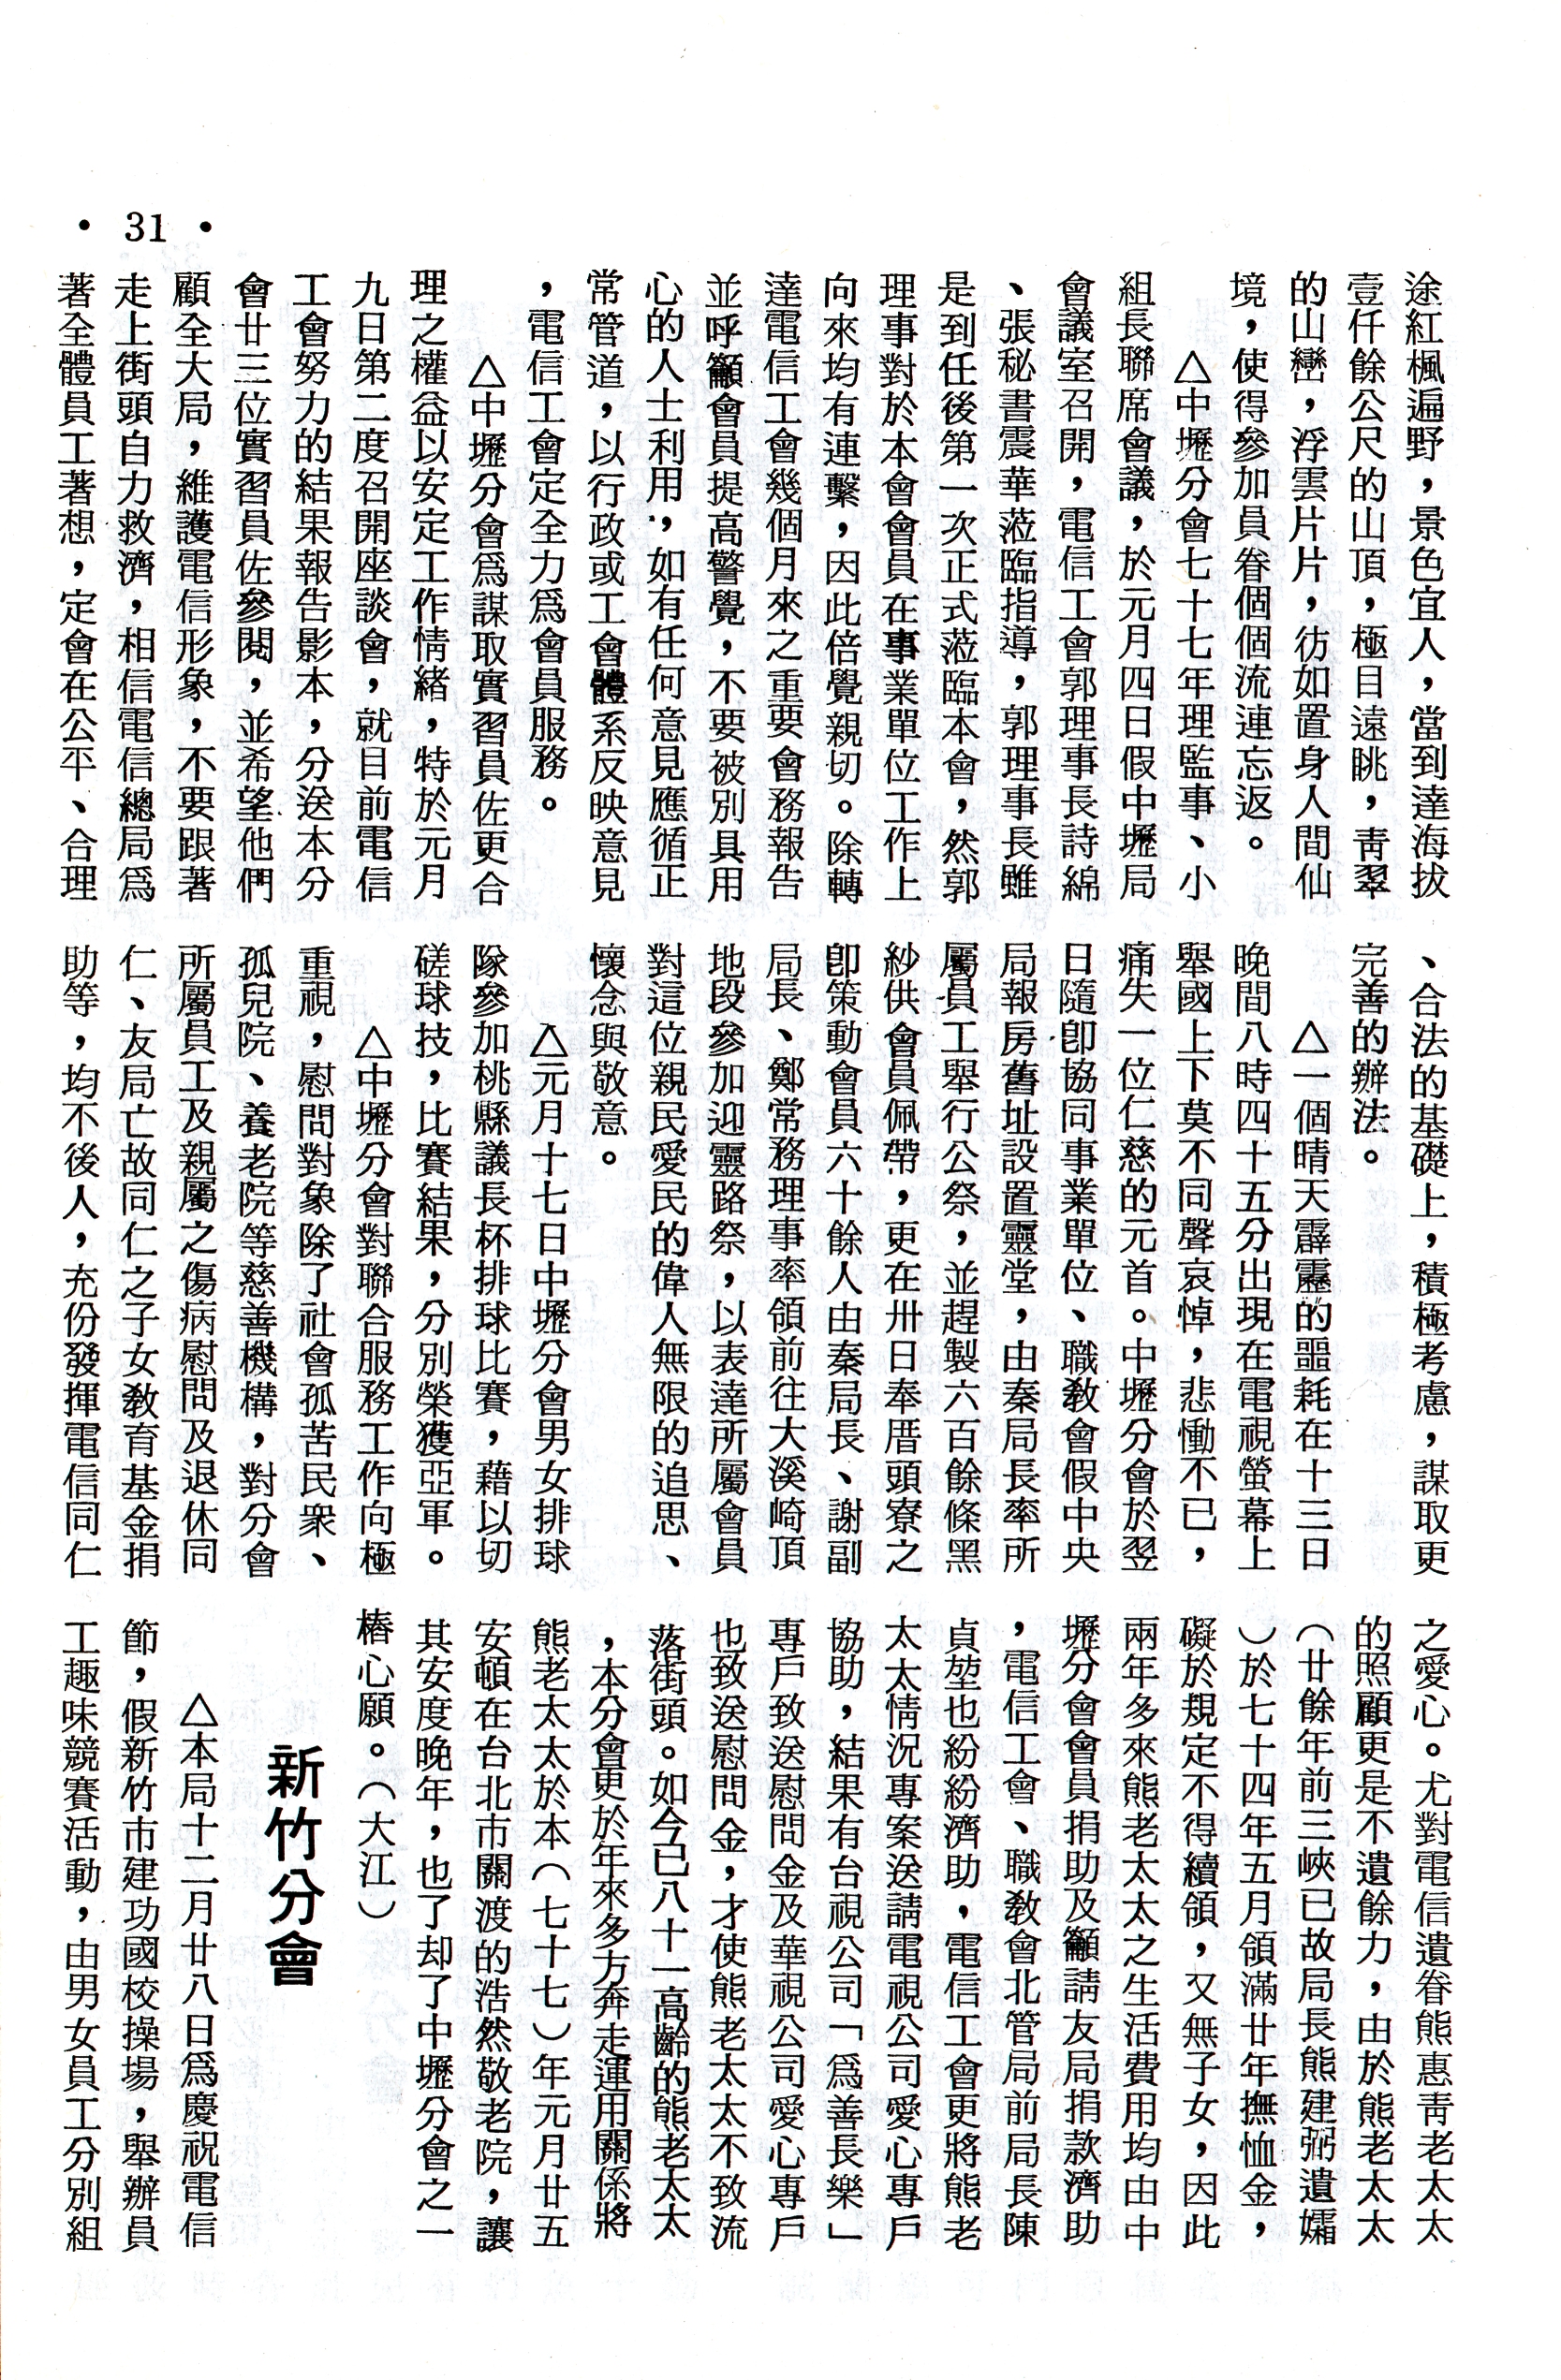 • 31 •
途紅楓遍野，景色宜人，當到達海拔
壹仟餘公尺的山頂，極目遠眺，靑翠
的山巒，浮雲片片，彷如置身人間仙
境，使得參加員眷個個流連忘返。
△中壢分會七十七年理監事、小
組長聯席會議，於元月四日假中壢局
會議室召開，電信工會郭理事長詩綿
、張秘書震華蒞臨指導，郭理事長雖
是到任後第一次正式蒞臨本會，然郭
理事對於本會會員在事業單位工作上
向來均有連繫，因此倍覺親切。除轉
達電信工會幾個月來之重要會務報告
並呼籲會員提高警覺，不要被別具用
心的人士利用，如有任何意見應循正
常管道，以行政或工會體系反映意見
，電信工會定全力爲會員服務。
△中壢分會爲謀取實習員佐更合
理之權益以安定工作情緒，特於元月
九日第二度召開座談會，就目前電信
工會努力的結果報告影本，分送本分
會廿三位實習員佐參閱，並希望他們
顧全大局，維護電信形象，不要跟著
走上街頭自力救濟，相信電信總局爲
著全體員工著想，定會在公平、合理
、合法的基礎上，積極考慮，謀取更
完善的辦法。
△一個晴天霹靂的噩耗在十三日
晚間八時四十五分出現在電視螢幕上
舉國上下莫不同聲哀悼，悲慟不已，
痛失一位仁慈的元首。中壢分會於翌
日隨卽協同事業單位、職敎會假中央
局報房舊址設置靈堂，由秦局長率所
屬員工舉行公祭，並趕製六百餘條黑
紗供會員佩帶，更在卅日奉厝頭寮之
卽策動會員六十餘人由秦局長、謝副
局長、鄭常務理事率領前往大溪崎頂
地段參加迎靈路祭，以表達所屬會員
對這位親民愛民的偉人無限的追思、
懷念與敬意。
△元月十七日中壢分會男女排球
隊參加桃縣議長杯排球比賽，藉以切
磋球技，比賽結果，分別榮獲亞軍。
△中壢分會對聯合服務工作向極
重視，慰問對象除了社會孤苦民衆、
孤兒院、養老院等慈善機構，對分會
所屬員工及親屬之傷病慰問及退休同
仁、友局亡故同仁之子女敎育基金捐
助等，均不後人，充份發揮電信同仁
之愛心。尤對電信遺眷熊惠靑老太太
的照顧更是不遺餘力，由於熊老太太
（廿餘年前三峽已故局長熊建弼遺孀
）於七十四年五月領滿廿年撫恤金，
礙於規定不得續領，又無子女，因此
兩年多來熊老太太之生活費用均由中
壢分會會員捐助及籲請友局捐款濟助
，電信工會、職敎會北管局前局長陳
貞堃也紛紛濟助，電信工會更將熊老
太太情況專案送請電視公司愛心專戶
協助，結果有台視公司「爲善長樂」
專戶致送慰問金及華視公司愛心專戶
也致送慰問金，才使熊老太太不致流
落街頭。如今已八十一高齡的熊老太太
，本分會更於年來多方奔走運用關係將
熊老太太於本（七十七）年元月廿五
安頓在台北市關渡的浩然敬老院，讓
其安度晚年，也了却了中壢分會之一
樁心願。（大江）
新竹分會
△本局十二月廿八日爲慶祝電信
節，假新竹市建功國校操場，舉辦員
工趣味競賽活動，由男女員工分別組